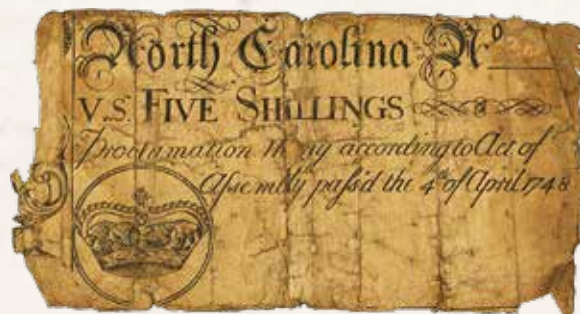 North Carolina N.º
V.S. FIVE SHILLINGS
Proclamation Mny according to Act of
Aſsembly paſs'd the 4th of April 1748